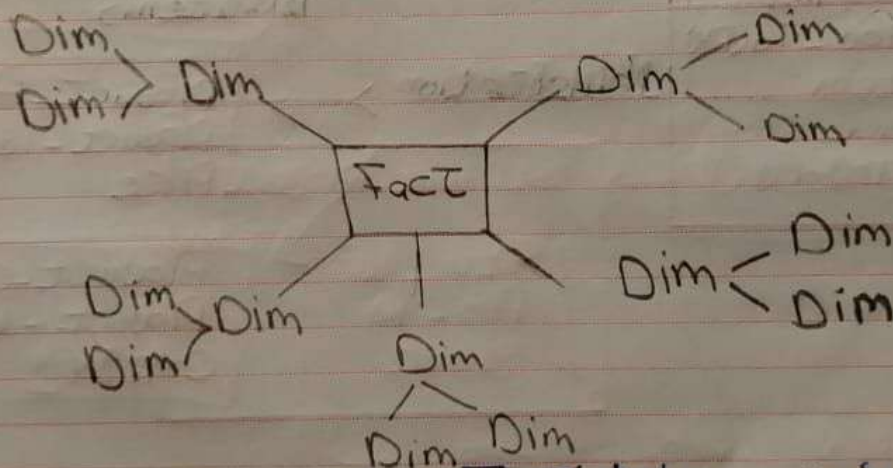 Dim
Dim
Dim
Dim
Dim
Dim
Fact
Dim
Dim
Dim
Dim
Dim
Dim
Dim
Dim
Dim